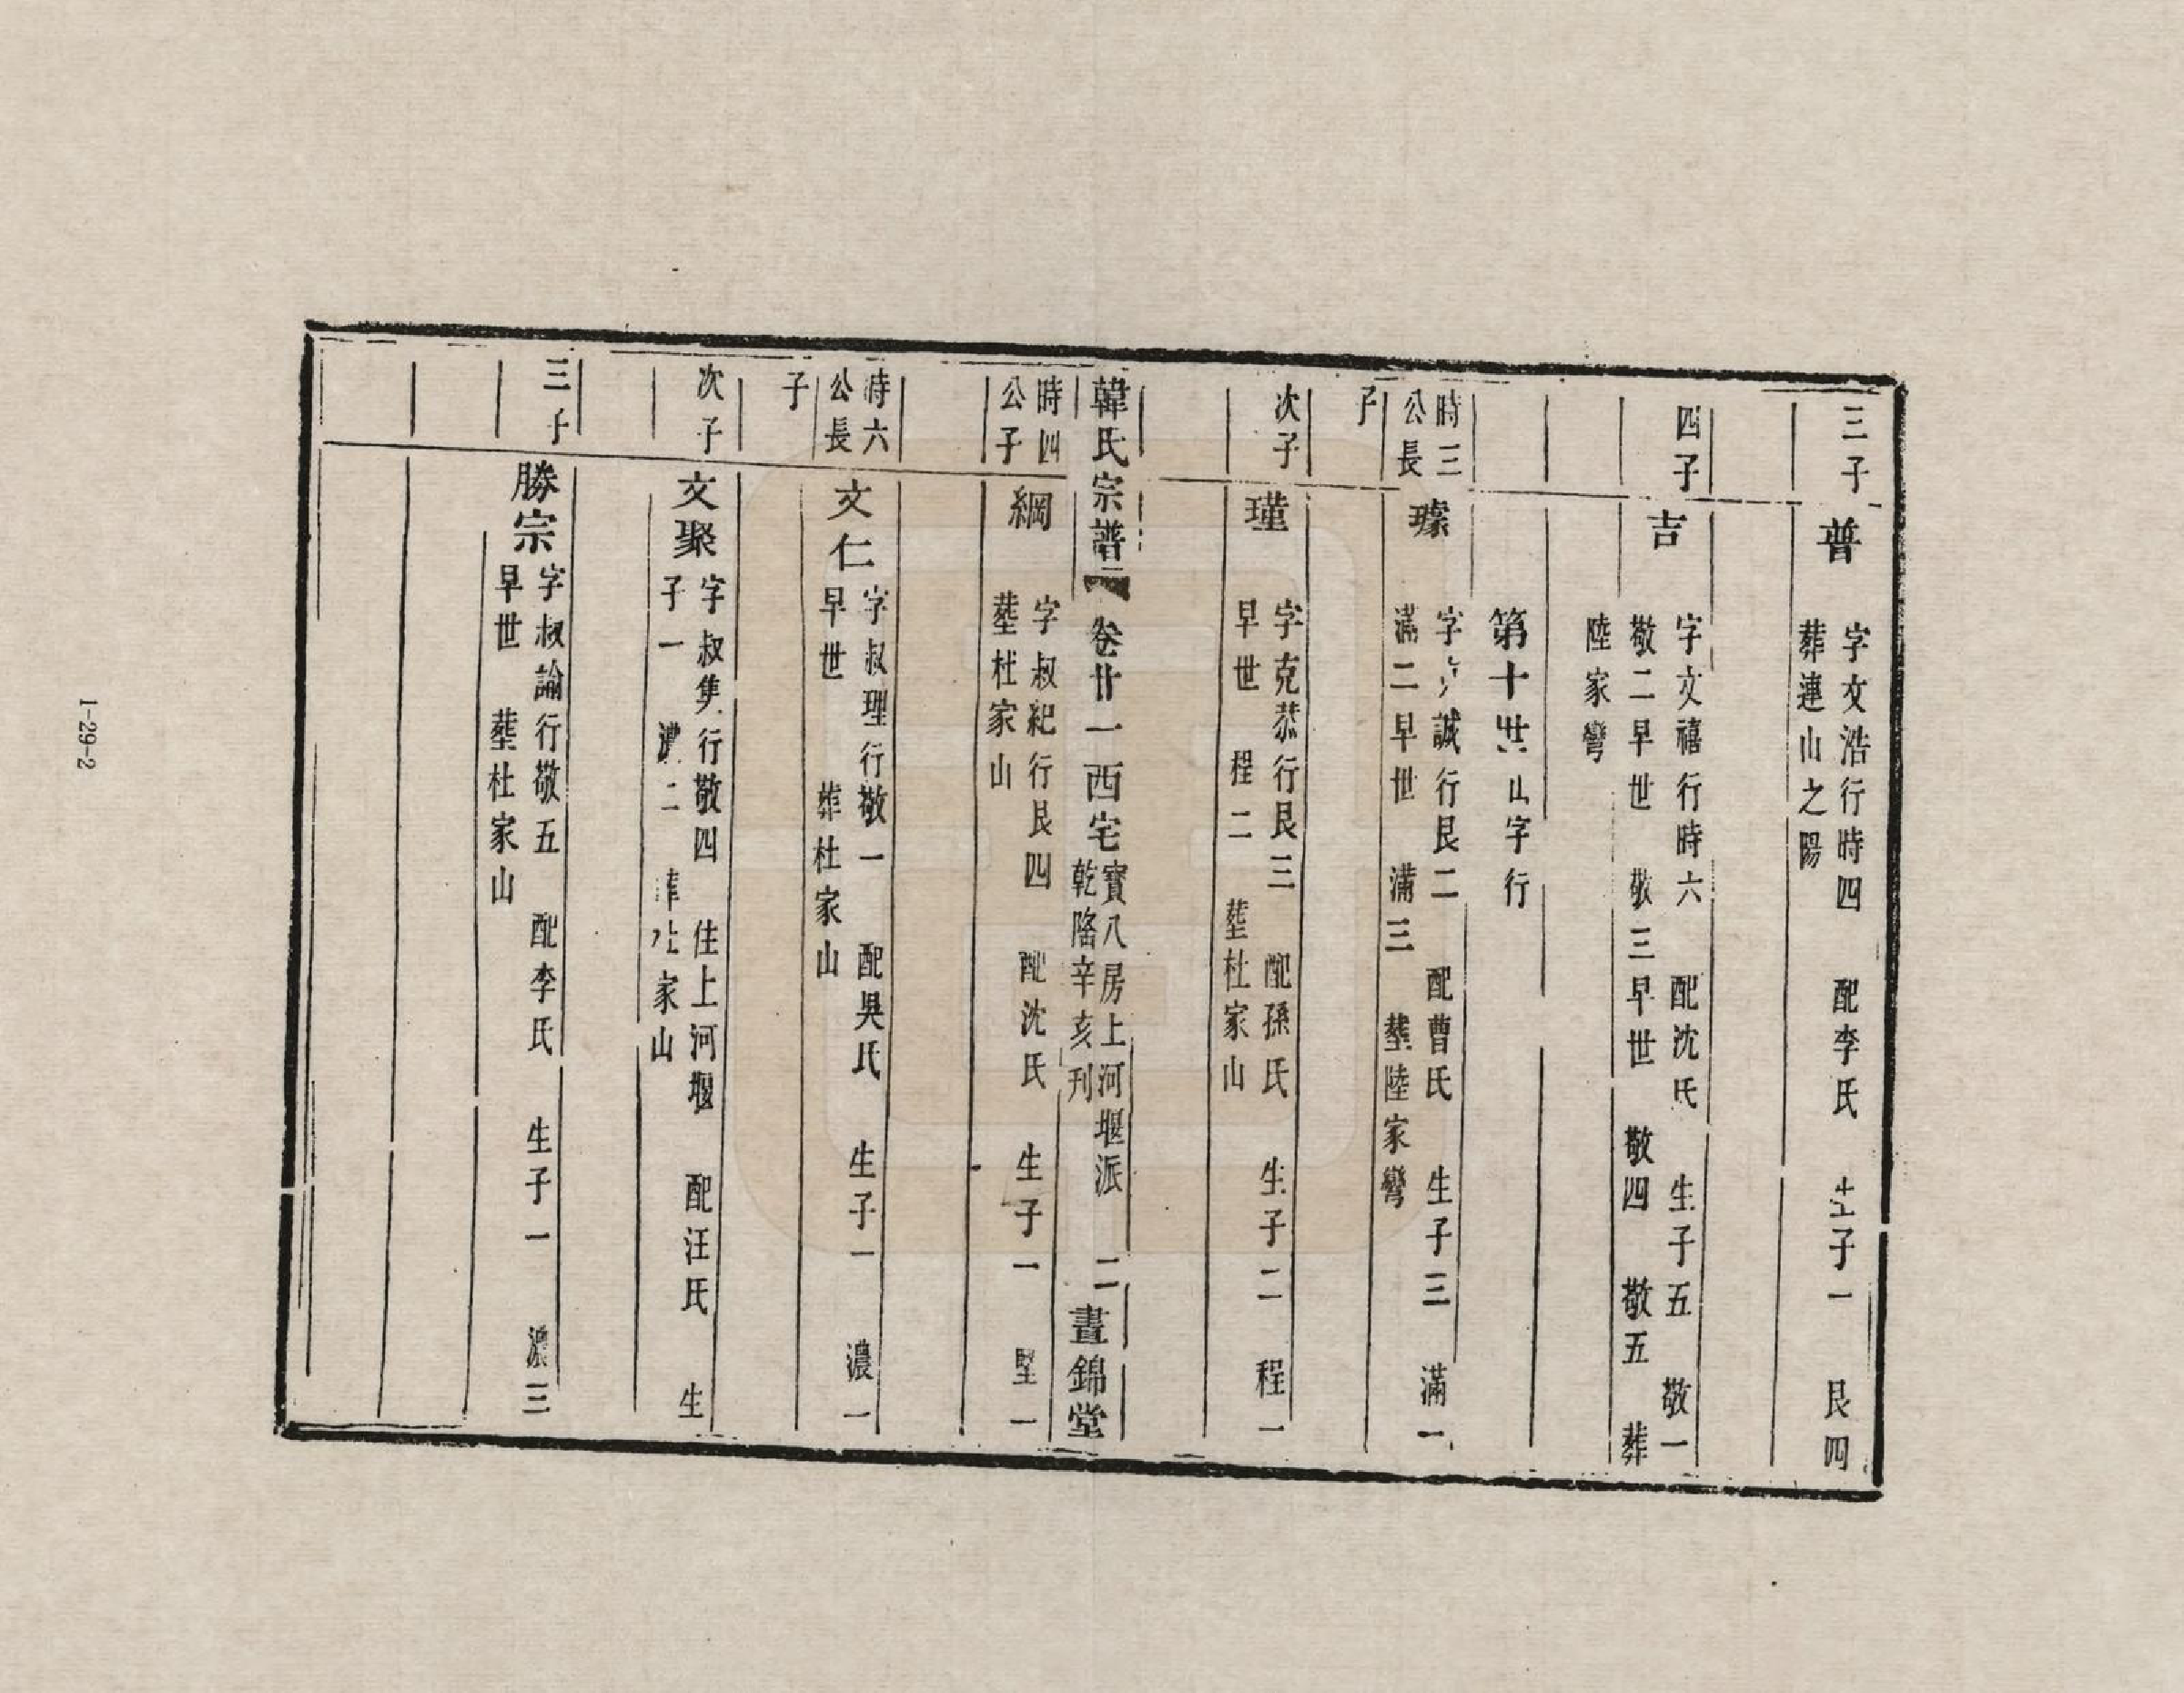 三子
普
字文浩行時四 配李氏 生子一 艮四
葬連山之陽
四子
吉
字文禧行時六 配沈氏 生子五 敬一
敬二早世 敬三早世 敬四 敬五 葬
陸家彎
第十世 字行
時三
公長
子
璩
字 誠行艮二 配曹氏 生子三 滿一
滿二早世 滿三 塟陸家彎
次子
瑾
字克恭行艮三 配孫氏 生子二 程一
早世 程二 塟杜家山
韓氏宗譜 卷廿一西宅
寶八房上河堰派 二
乾隆辛亥刊
晝錦堂
時四
公子
綱
字叔紀行艮四 配沈氏 生子一 堅一
塟杜家山
時六
公長
子
文仁
字叔理行敬一 配吳氏 生子一 濃一
早世 葬杜家山
次子
文聚
字叔隽行敬四 住上河堰 配汪氏 生
子一 濃二 葬杜家山
三子
勝宗
字叔論行敬五 配李氏 生子一 濃三
早世 塟杜家山
1-29-2